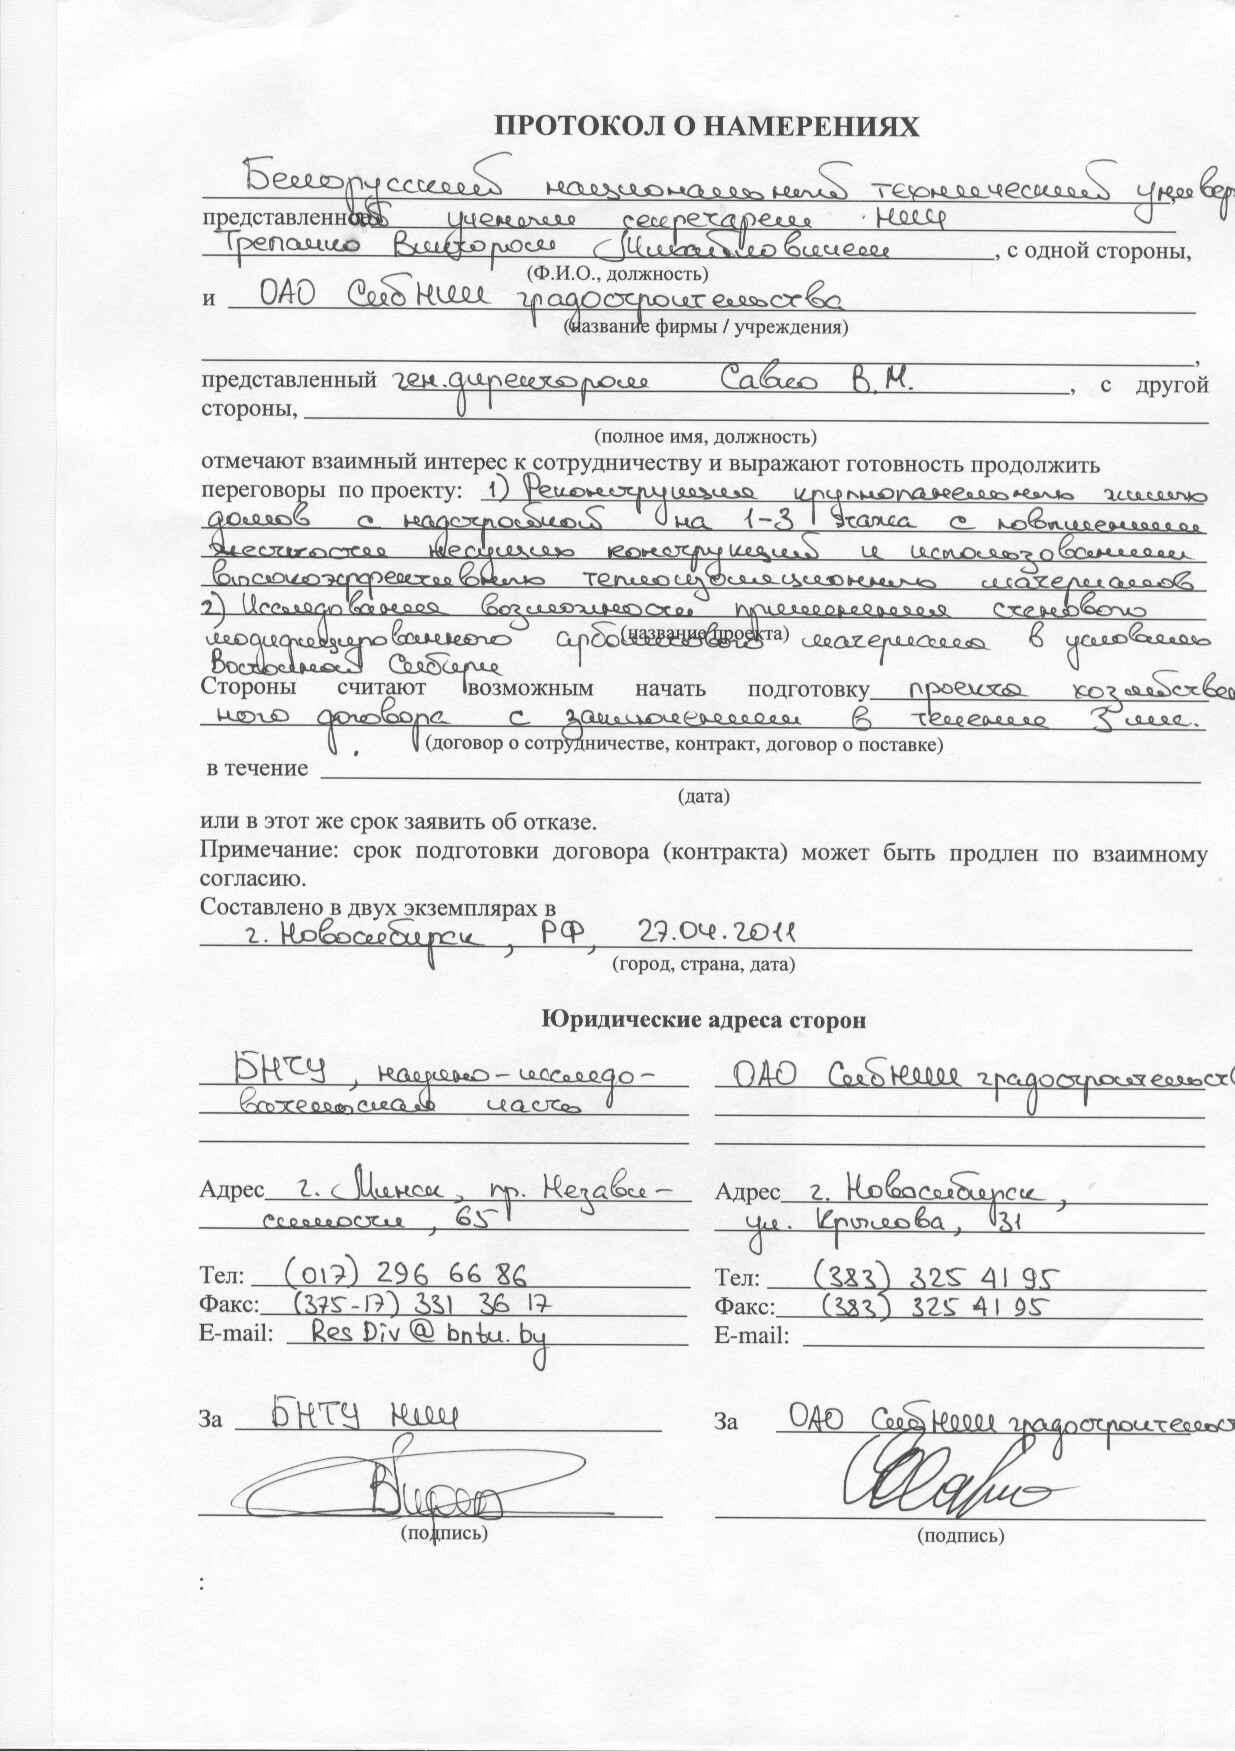 ПРОТОКОЛ О НАМЕРЕНИЯХ
Белорусский национальный технический универ
представленный ученым секретарем НИЧ
Трепачко Виктором Михайловичем, с одной стороны,
(Ф.И.О., должность)
и ОАО СибНИИ градостроительства
(название фирмы / учреждения)
,
представленный ген.директором Савко В.М., с другой
стороны,
(полное имя, должность)
отмечают взаимный интерес к сотрудничеству и выражают готовность продолжить
переговоры по проекту: 1) Реконструкция крупнопанельных жилых
домов с надстройкой на 1-3 этажа с повышением
жесткости несущих конструкций и использованием
высокоэффективных теплоизоляционных материалов
2) Исследования возможности применения стенового
(название проекта)
модифицированного арболитового материала в условиях
Восточной Сибири
Стороны считают возможным начать подготовку проекта хозяйствен
ного договора с заключением в течение 3 мес.
(договор о сотрудничестве, контракт, договор о поставке)
в течение
(дата)
или в этот же срок заявить об отказе.
Примечание: срок подготовки договора (контракта) может быть продлен по взаимному
согласию.
Составлено в двух экземплярах в
г. Новосибирск, РФ, 27.04.2011
(город, страна, дата)
Юридические адреса сторон
БНТУ, научно-исследо- ОАО СибНИИ градостроительств
вательская часть
Адрес г. Минск, пр. Незави- Адрес г. Новосибирск,
симости, 65 ул. Крылова, 31
Тел: (017) 296 66 86 Тел: (383) 325 41 95
Факс: (375-17) 331 36 17 Факс: (383) 325 41 95
E-mail: ResDiv@bntu.by E-mail:
За БНТУ НИЧ За ОАО СибНИИ градостроительст
(подпись) (подпись)
: